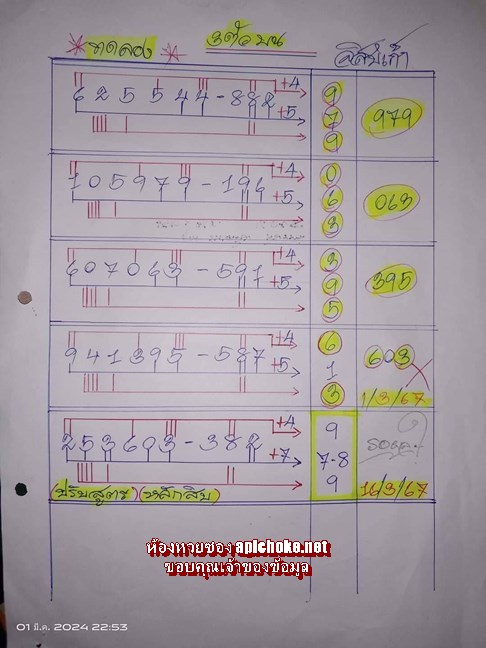 ทดลอง 3ตัวบน อิสปเก้า
625544-882 +4 +5 9 7 9 979
105979-194 +4 +5 0 6 3 063
607063-591 +4 +5 3 9 5 395
941395-587 +4 +5 6 1 3 603 1/3/67
253603-382 +4 +7 9 7-8 9 รอผล 16/3/67
(ปรับสูตร) (หลักสิบ)
ห้องหวยซอง apichoke.net
ขอบคุณเจ้าของข้อมูล
01 มี.ค. 2024 22:53